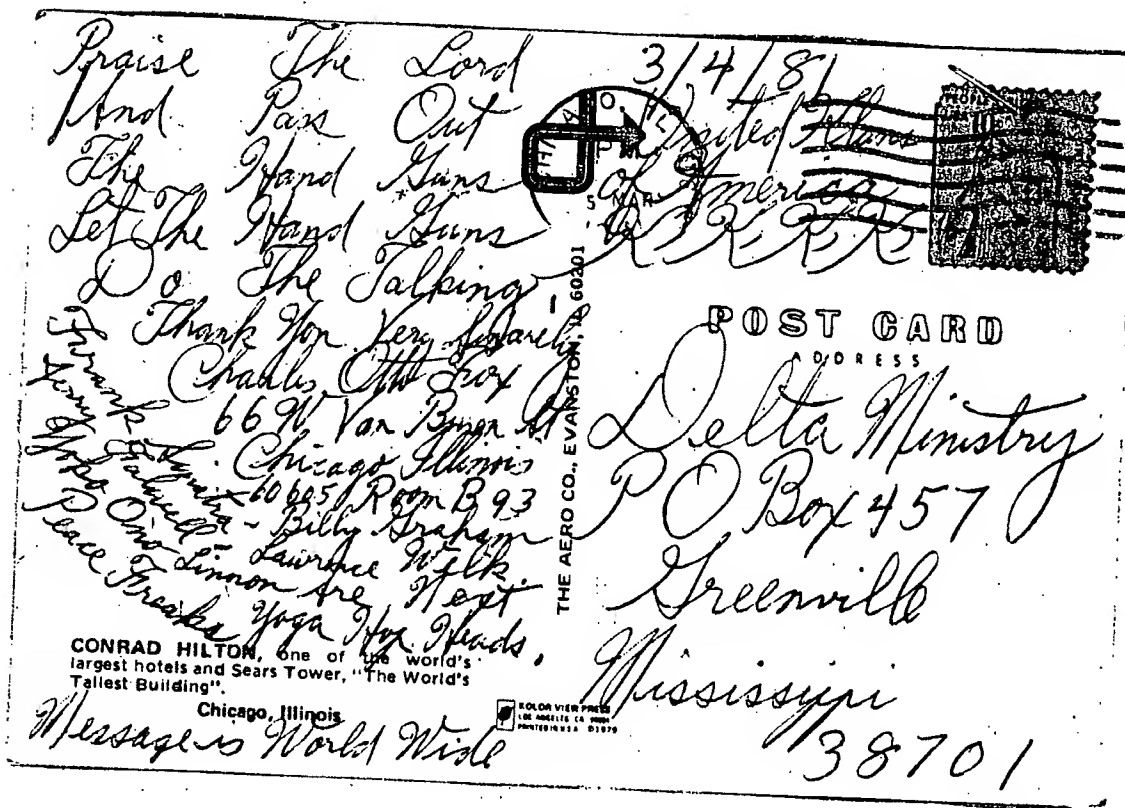 Praise The Lord
And Pass Out
The Hand Guns
Let The Hand Guns
Do The Talking
Thank You Very Sincerely
Charles Otto Fox
66 W Van Buren St
Chicago Illinois
60605 Room B 93
Frank Synatra - Billy Graham
Jerry Falwell - Lawrence Welk.
Yoko Ono Linnon Are Next
Peace Freaks Yoga Hog Heads.
CONRAD HILTON, one of the world's
largest hotels and Sears Tower, "The World's
Tallest Building".
Chicago, Illinois
Message is World Wide
THE AERO CO., EVANSTON, IL 60201
KOLOR VIEW PRESS
LOS ANGELES CA
PRINTED IN USA D1979
3/4/81
United Klans
of America
K.K.K.K.
5 MAR
POST CARD
ADDRESS
Delta Ministry
P O Box 457
Greenville
Mississippi
38701